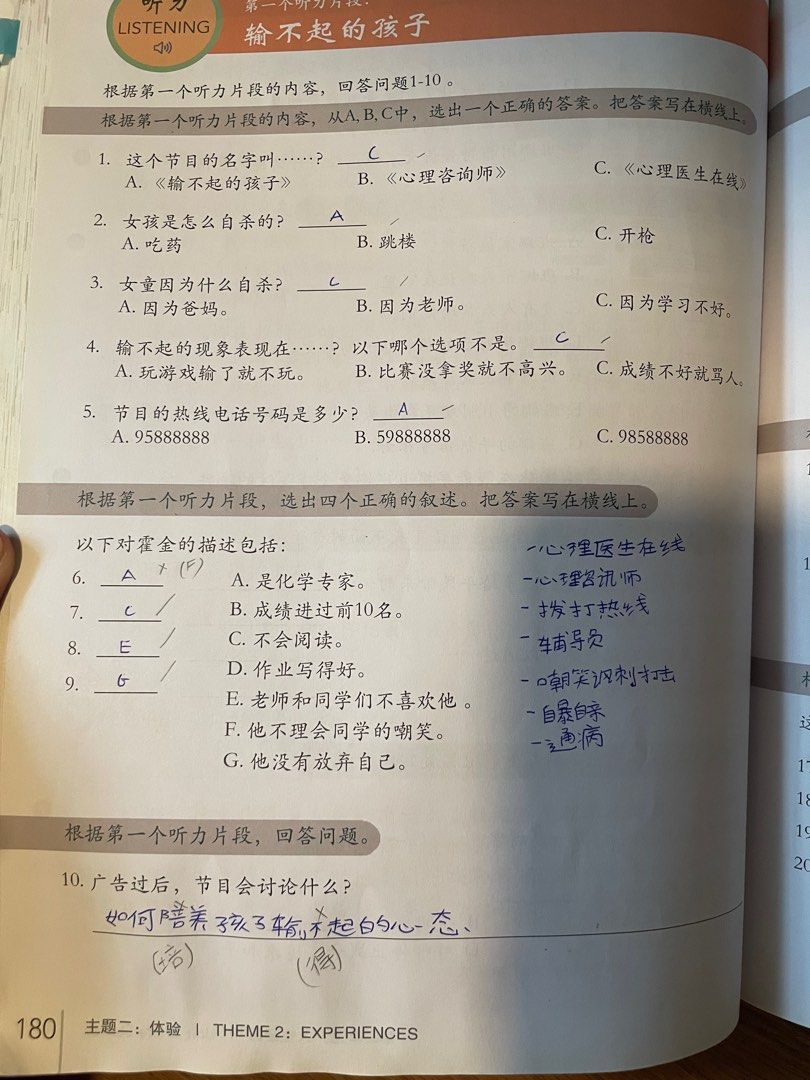 听力
LISTENING
第一个听力片段：
输不起的孩子
根据第一个听力片段的内容，回答问题1-10 。
根据第一个听力片段的内容，从A, B, C中，选出一个正确的答案。把答案写在横线上。
1. 这个节目的名字叫……？ C
A.《输不起的孩子》 B.《心理咨询师》 C.《心理医生在线》
2. 女孩是怎么自杀的？ A
A. 吃药 B. 跳楼 C. 开枪
3. 女童因为什么自杀？ C
A. 因为爸妈。 B. 因为老师。 C. 因为学习不好。
4. 输不起的现象表现在……？以下哪个选项不是。 C
A. 玩游戏输了就不玩。 B. 比赛没拿奖就不高兴。 C. 成绩不好就骂人。
5. 节目的热线电话号码是多少？ A
A. 95888888 B. 59888888 C. 98588888
根据第一个听力片段，选出四个正确的叙述。把答案写在横线上。
以下对霍金的描述包括：
6. A × (F) A. 是化学专家。
7. C B. 成绩进过前10名。
8. E C. 不会阅读。
9. G D. 作业写得好。
E. 老师和同学们不喜欢他 。
F. 他不理会同学的嘲笑。
G. 他没有放弃自己。
- 心理医生在线
- 心理咨讯师
- 拨打热线
- 辅导员
- 嘲笑讽刺打击
- 自暴自弃
- 通病
根据第一个听力片段，回答问题。
10. 广告过后，节目会讨论什么？
如何陪养孩子输不起的心态、
(培) (得)
180 主题二：体验 | THEME 2: EXPERIENCES
1
1
这
17
18
19
20